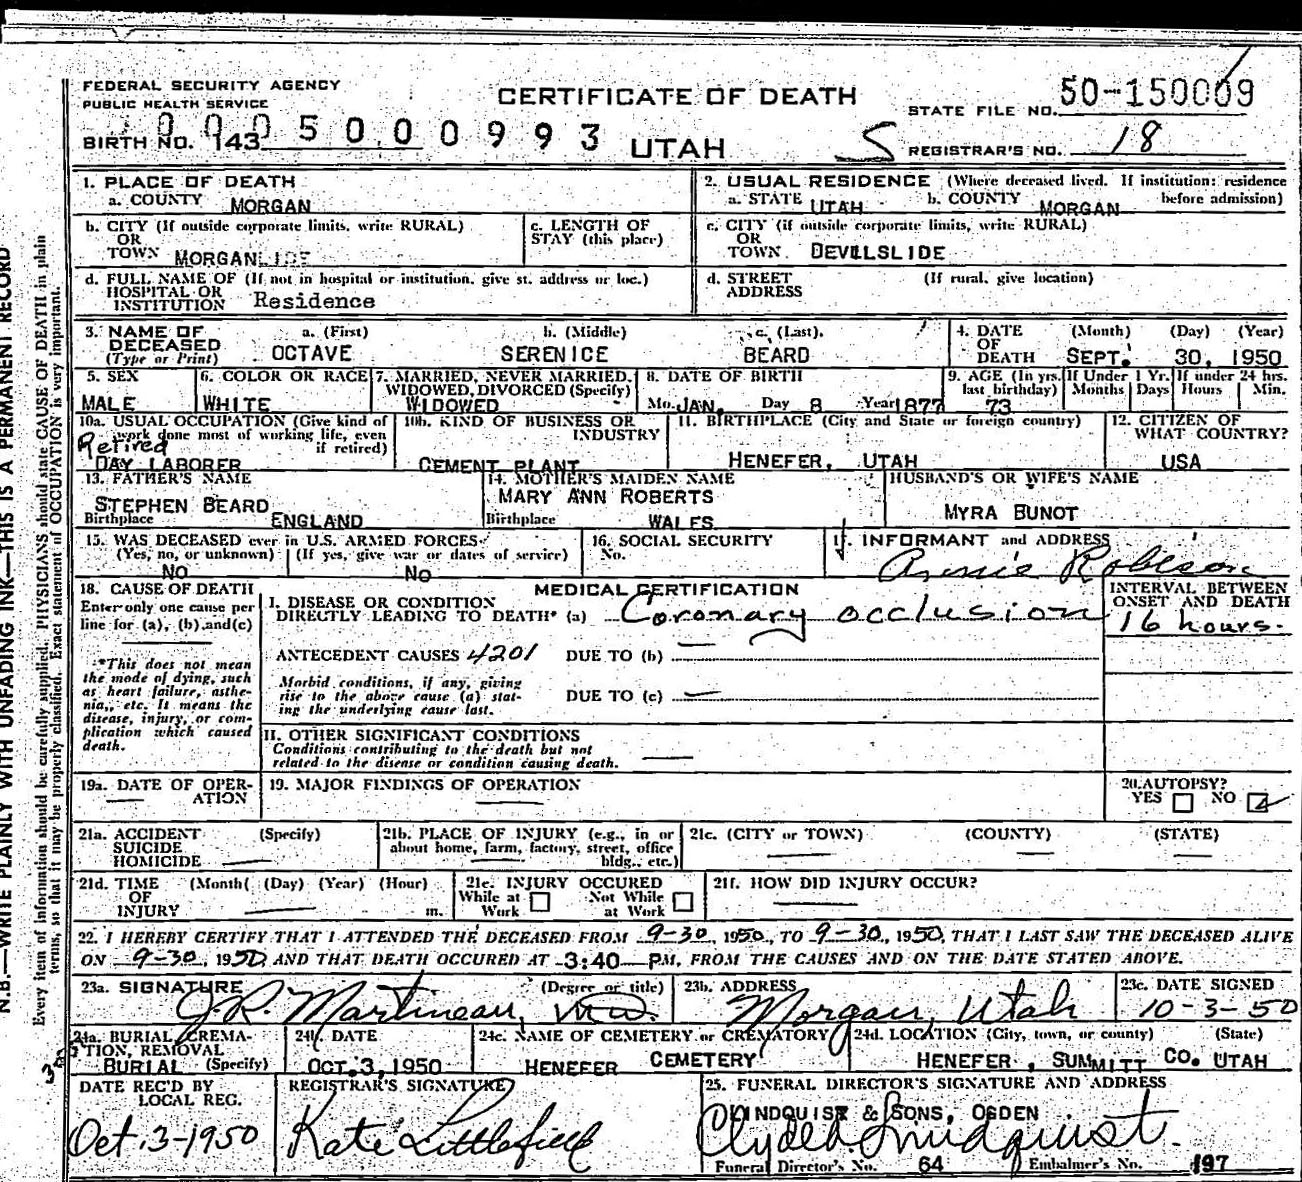 FEDERAL SECURITY AGENCY
PUBLIC HEALTH SERVICE
CERTIFICATE OF DEATH
STATE FILE NO. 50-150009
BIRTH NO. 143 0005000993
UTAH
S
REGISTRAR'S NO. 18
1. PLACE OF DEATH
a. COUNTY MORGAN
2. USUAL RESIDENCE (Where deceased lived. If institution: residence before admission)
a. STATE UTAH b. COUNTY MORGAN
b. CITY (If outside corporate limits, write RURAL)
OR
TOWN MORGAN
c. LENGTH OF
STAY (this place)
c. CITY (if outside corporate limits, write RURAL)
OR
TOWN DEVILSLIDE
d. FULL NAME OF (If not in hospital or institution, give st. address or loc.)
HOSPITAL OR
INSTITUTION Residence
d. STREET (If rural, give location)
ADDRESS
3. NAME OF DECEASED
(Type or Print)
a. (First) b. (Middle) c. (Last)
OCTAVE SERENICE BEARD
4. DATE OF DEATH (Month) (Day) (Year)
SEPT. 30, 1950
5. SEX
MALE
6. COLOR OR RACE
WHITE
7. MARRIED, NEVER MARRIED,
WIDOWED, DIVORCED (Specify)
WIDOWED
8. DATE OF BIRTH
Mo. JAN. Day 8 Year 1877
9. AGE (In yrs. last birthday) 73
If Under 1 Yr. Months Days
If under 24 hrs. Hours Min.
10a. USUAL OCCUPATION (Give kind of work done most of working life, even if retired)
Retired
DAY LABORER
10b. KIND OF BUSINESS OR INDUSTRY
CEMENT PLANT
11. BIRTHPLACE (City and State or foreign country)
HENEFER, UTAH
12. CITIZEN OF WHAT COUNTRY?
USA
13. FATHER'S NAME
STEPHEN BEARD
Birthplace ENGLAND
14. MOTHER'S MAIDEN NAME
MARY ANN ROBERTS
Birthplace WALES
HUSBAND'S OR WIFE'S NAME
MYRA BUNOT
15. WAS DECEASED ever in U.S. ARMED FORCES
(Yes, no, or unknown) (If yes, give war or dates of service)
NO No
16. SOCIAL SECURITY
No.
17. INFORMANT and ADDRESS
Annie Robison
18. CAUSE OF DEATH
Enter only one cause per
line for (a), (b), and (c)
*This does not mean
the mode of dying, such
as heart failure, asthe-
nia, etc. It means the
disease, injury, or com-
plication which caused
death.
MEDICAL CERTIFICATION
I. DISEASE OR CONDITION
DIRECTLY LEADING TO DEATH* (a) Coronary occlusion
INTERVAL BETWEEN
ONSET AND DEATH
16 hours.
ANTECEDENT CAUSES 4201 DUE TO (b)
Morbid conditions, if any, giving
rise to the above cause (a) stat-
ing the underlying cause last.
DUE TO (c) —
II. OTHER SIGNIFICANT CONDITIONS
Conditions contributing to the death but not
related to the disease or condition causing death. —
19a. DATE OF OPER-
ATION —
19. MAJOR FINDINGS OF OPERATION
—
20. AUTOPSY?
YES NO
21a. ACCIDENT (Specify)
SUICIDE
HOMICIDE —
21b. PLACE OF INJURY (e.g., in or
about home, farm, factory, street, office
bldg., etc.) —
21c. (CITY or TOWN) (COUNTY) (STATE)
— — —
21d. TIME (Month) (Day) (Year) (Hour)
OF
INJURY — m.
21e. INJURY OCCURED
While at Work Not While at Work
21f. HOW DID INJURY OCCUR?
—
22. I HEREBY CERTIFY THAT I ATTENDED THE DECEASED FROM 9-30, 1950, TO 9-30, 1950, THAT I LAST SAW THE DECEASED ALIVE
ON 9-30, 1950, AND THAT DEATH OCCURED AT 3:40 PM, FROM THE CAUSES AND ON THE DATE STATED ABOVE.
23a. SIGNATURE (Degree or title)
J.R. Martineau, MD.
23b. ADDRESS
Morgan, Utah
23c. DATE SIGNED
10-3-50
24a. BURIAL, CREMA-
TION, REMOVAL
BURIAL (Specify)
24b DATE
OCT. 3, 1950
24c. NAME OF CEMETERY or CREMATORY
HENEFER CEMETERY
24d. LOCATION (City, town, or county) (State)
HENEFER, SUMMITT CO. UTAH
DATE REC'D BY
LOCAL REG.
Oct. 3-1950
REGISTRAR'S SIGNATURE
Kate Littlefield
25. FUNERAL DIRECTOR'S SIGNATURE AND ADDRESS
LINDQUIST & SONS, OGDEN
Clyde Lindquist.
Funeral Director's No. 64 Embalmer's No. 197
N.B.—WRITE PLAINLY WITH UNFADING INK—THIS IS A PERMANENT RECORD
Every item of information should be carefully supplied. PHYSICIANS should state CAUSE OF DEATH in plain
terms, so that it may be properly classified. Exact statement of OCCUPATION is very important.